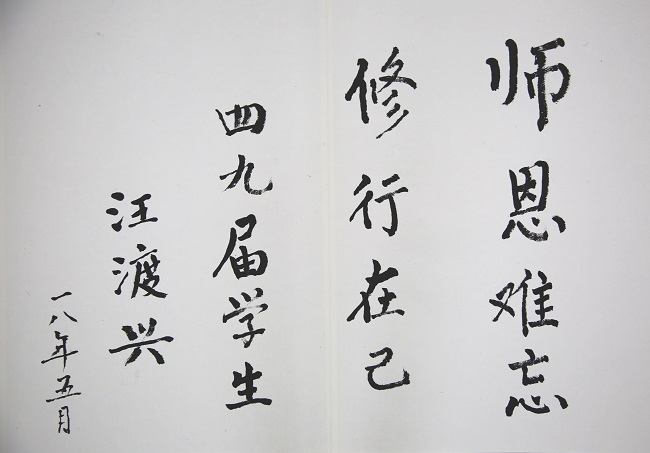 师恩难忘
修行在己
四九届学生
汪渡兴
一八年五月